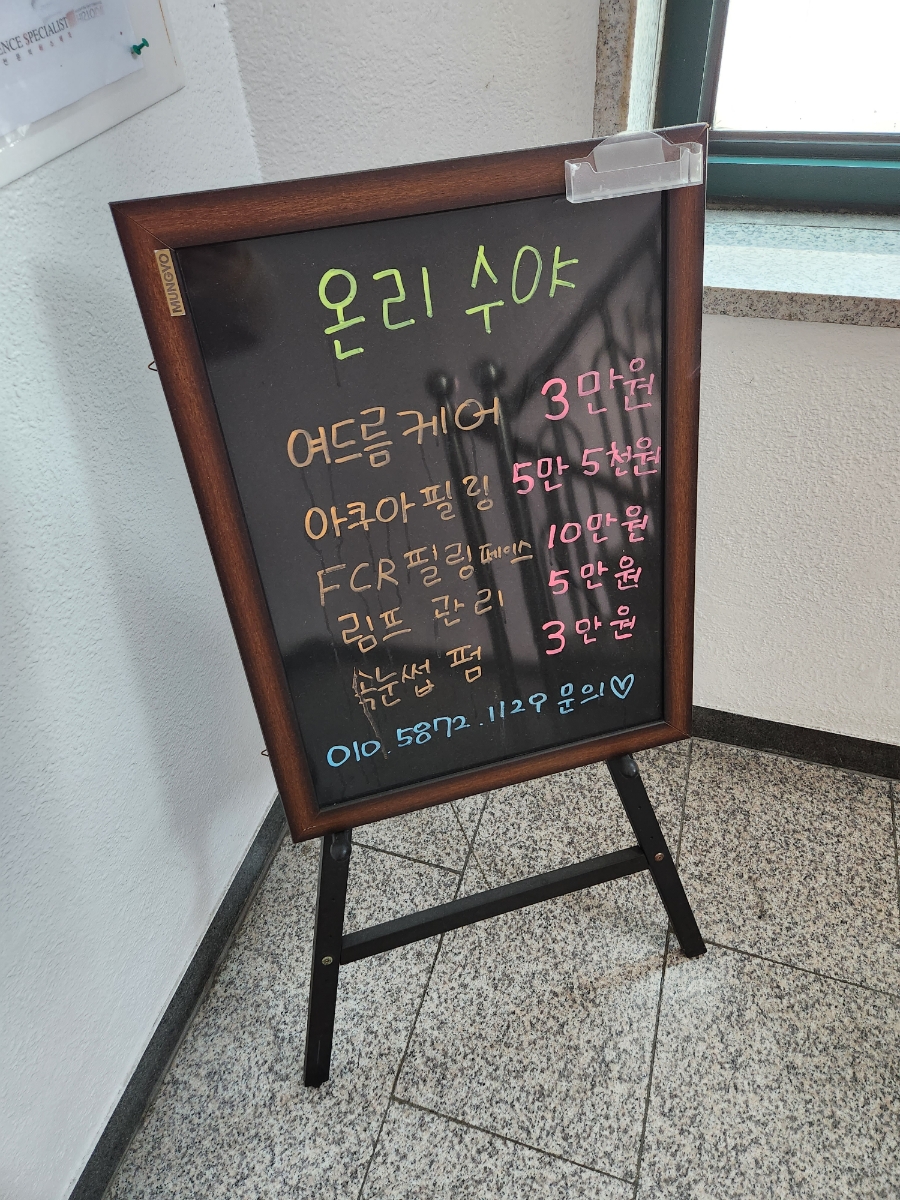 ENCE SPECIALIST
MUNGYO
온리 수야
여드름케어 3만원
아쿠아필링 5만 5천원
FCR필링페이스 10만원
림프 관리 5만원
속눈썹 펌 3만원
010.5872.1129 문의♡